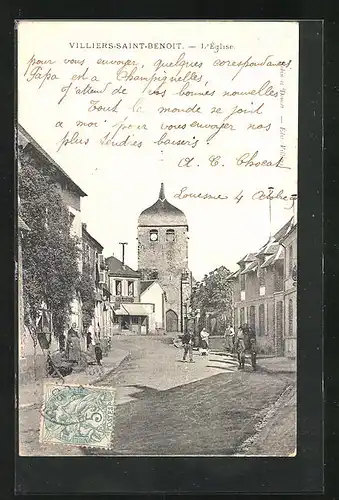 VILLIERS-SAINT-BENOIT. — L'Église.
pour vous envoyer, quelques corespondances
Papa est a Champignelles,
J'attend de vos bonnes nouvelles
Tout le monde se joint
a moi pour vous envoyer nos
plus tendres baisers.
A. C. Chocat
4